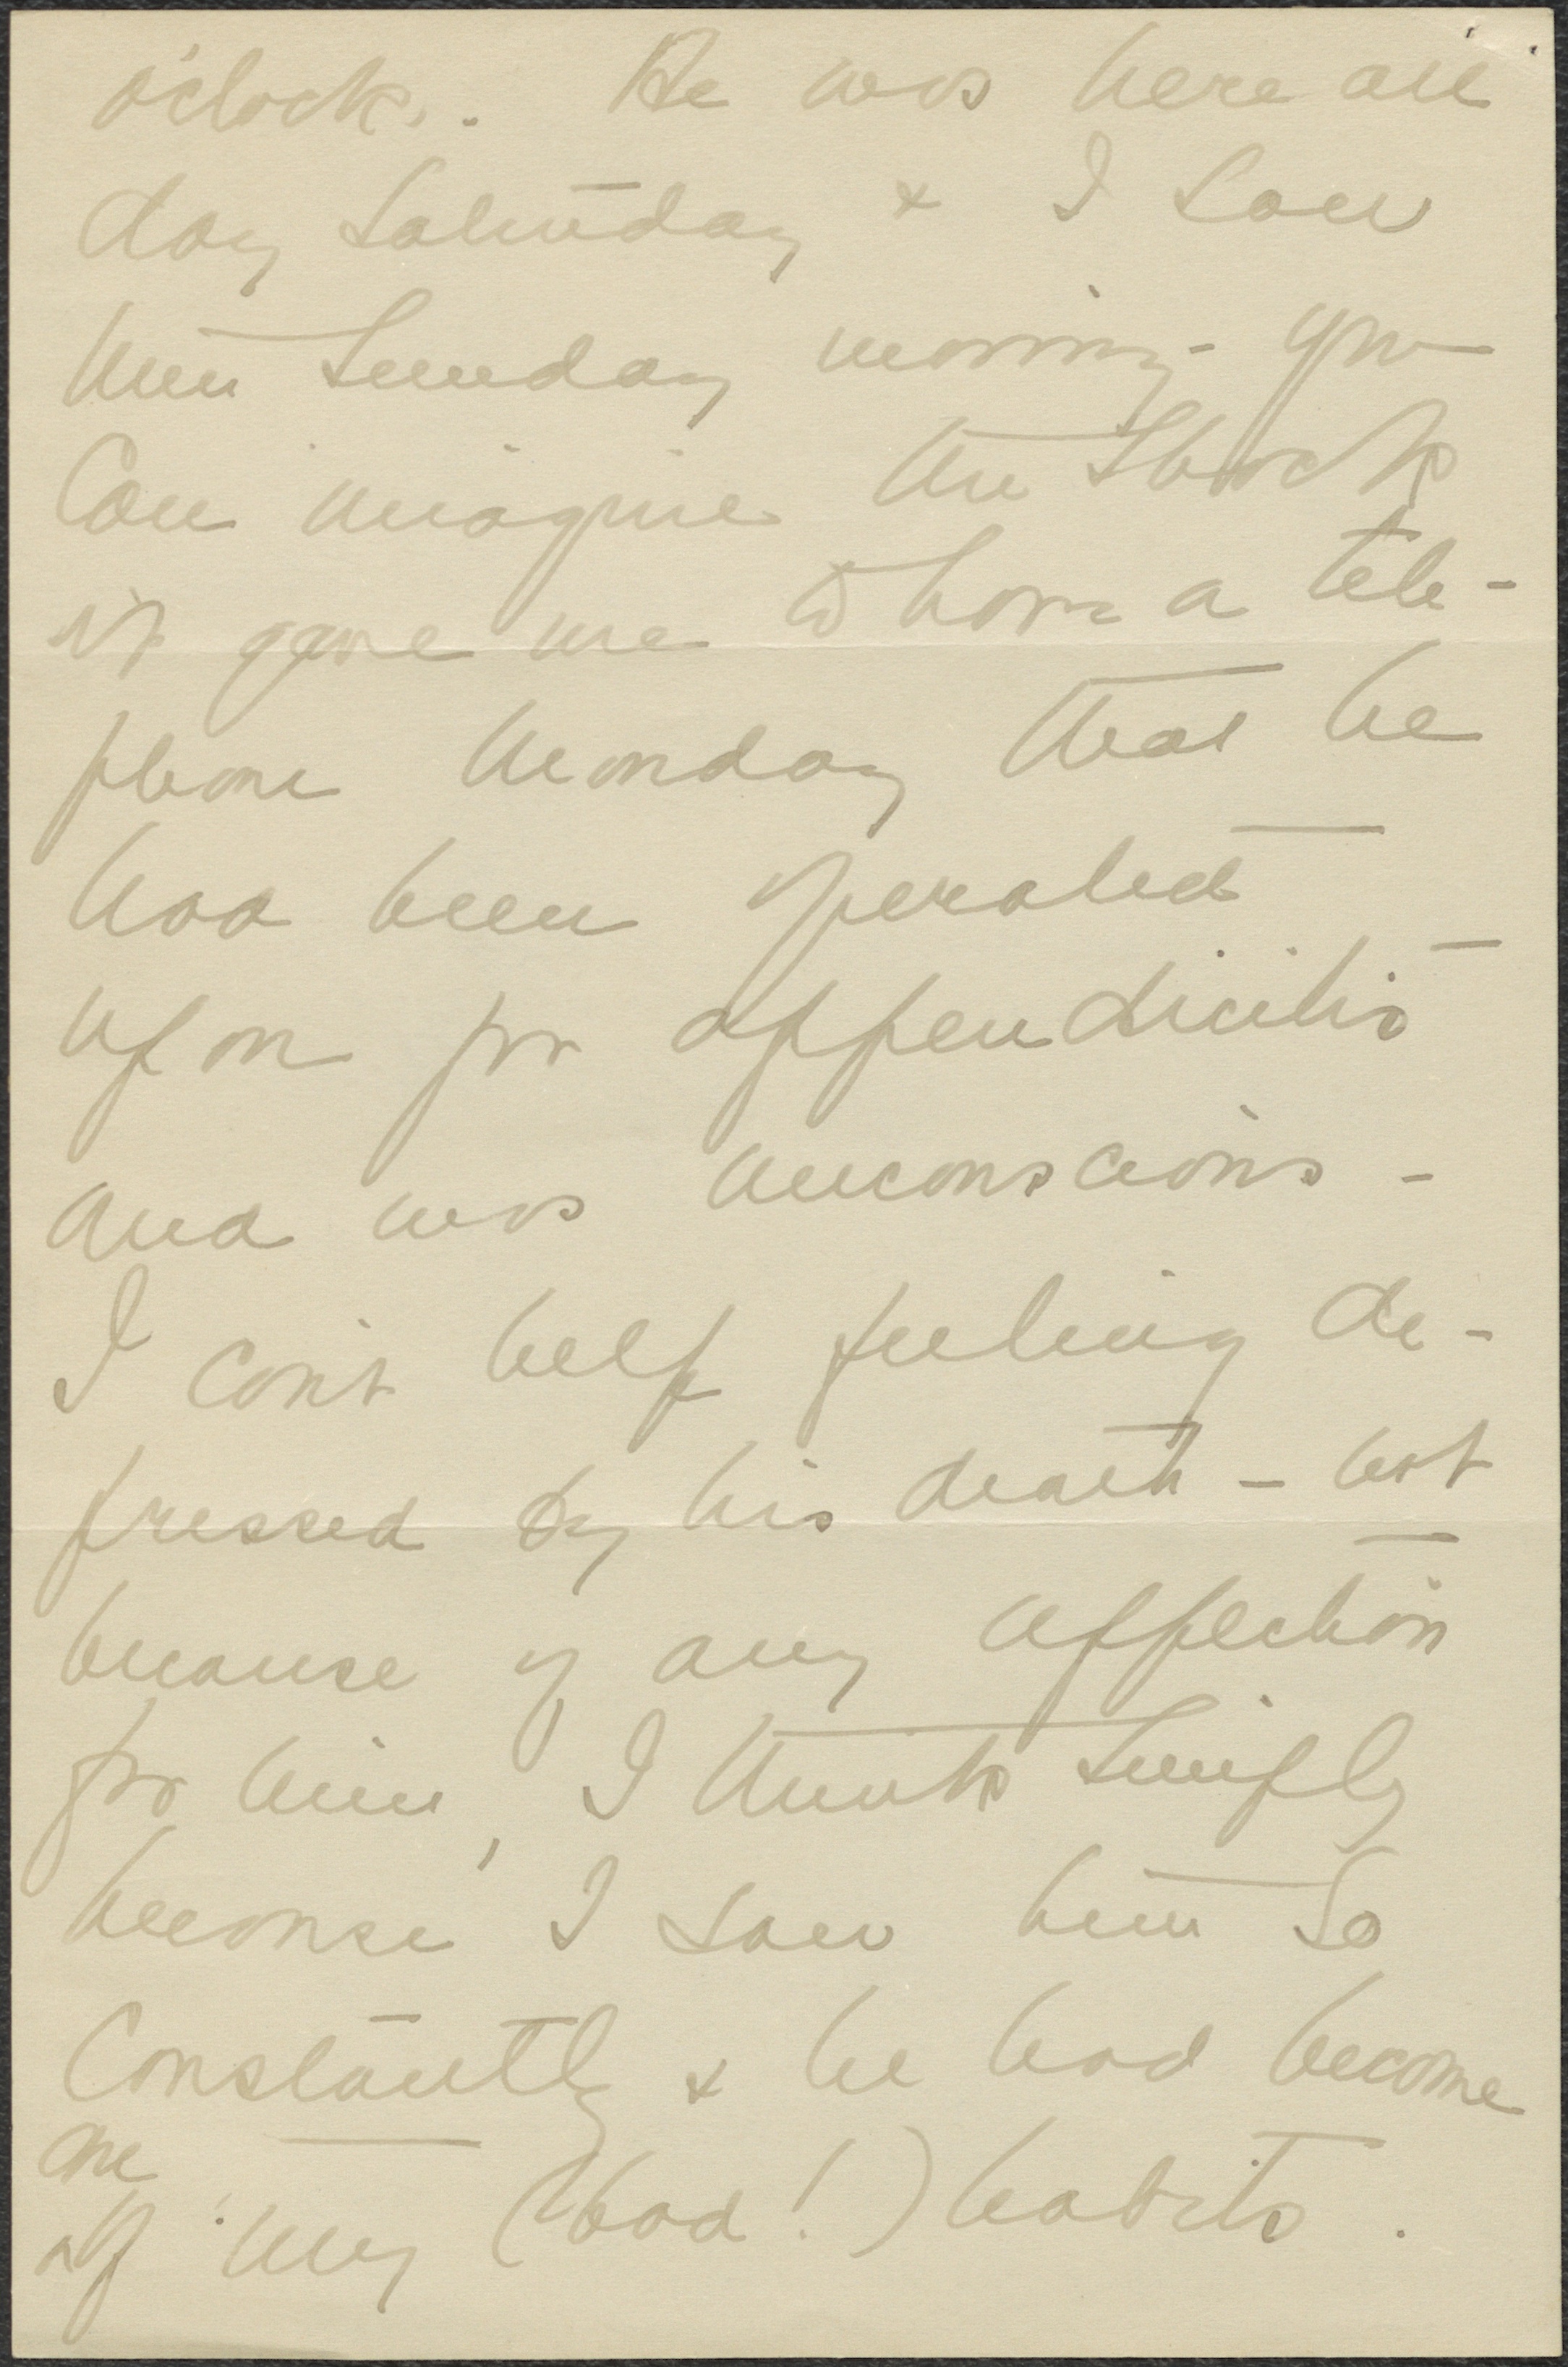 o'clock. He was here all
day Saturday & I saw
him Sunday morning - you
can imagine the shock
it gave me to have a tele-
phone Monday that he
had been operated
upon for appendicitis
and was unconscious -
I can't help feeling de-
pressed by his death - not
because of any affection
for him, I think simply
because I saw him so
constantly & he had become
one
of my (bad!) habits.